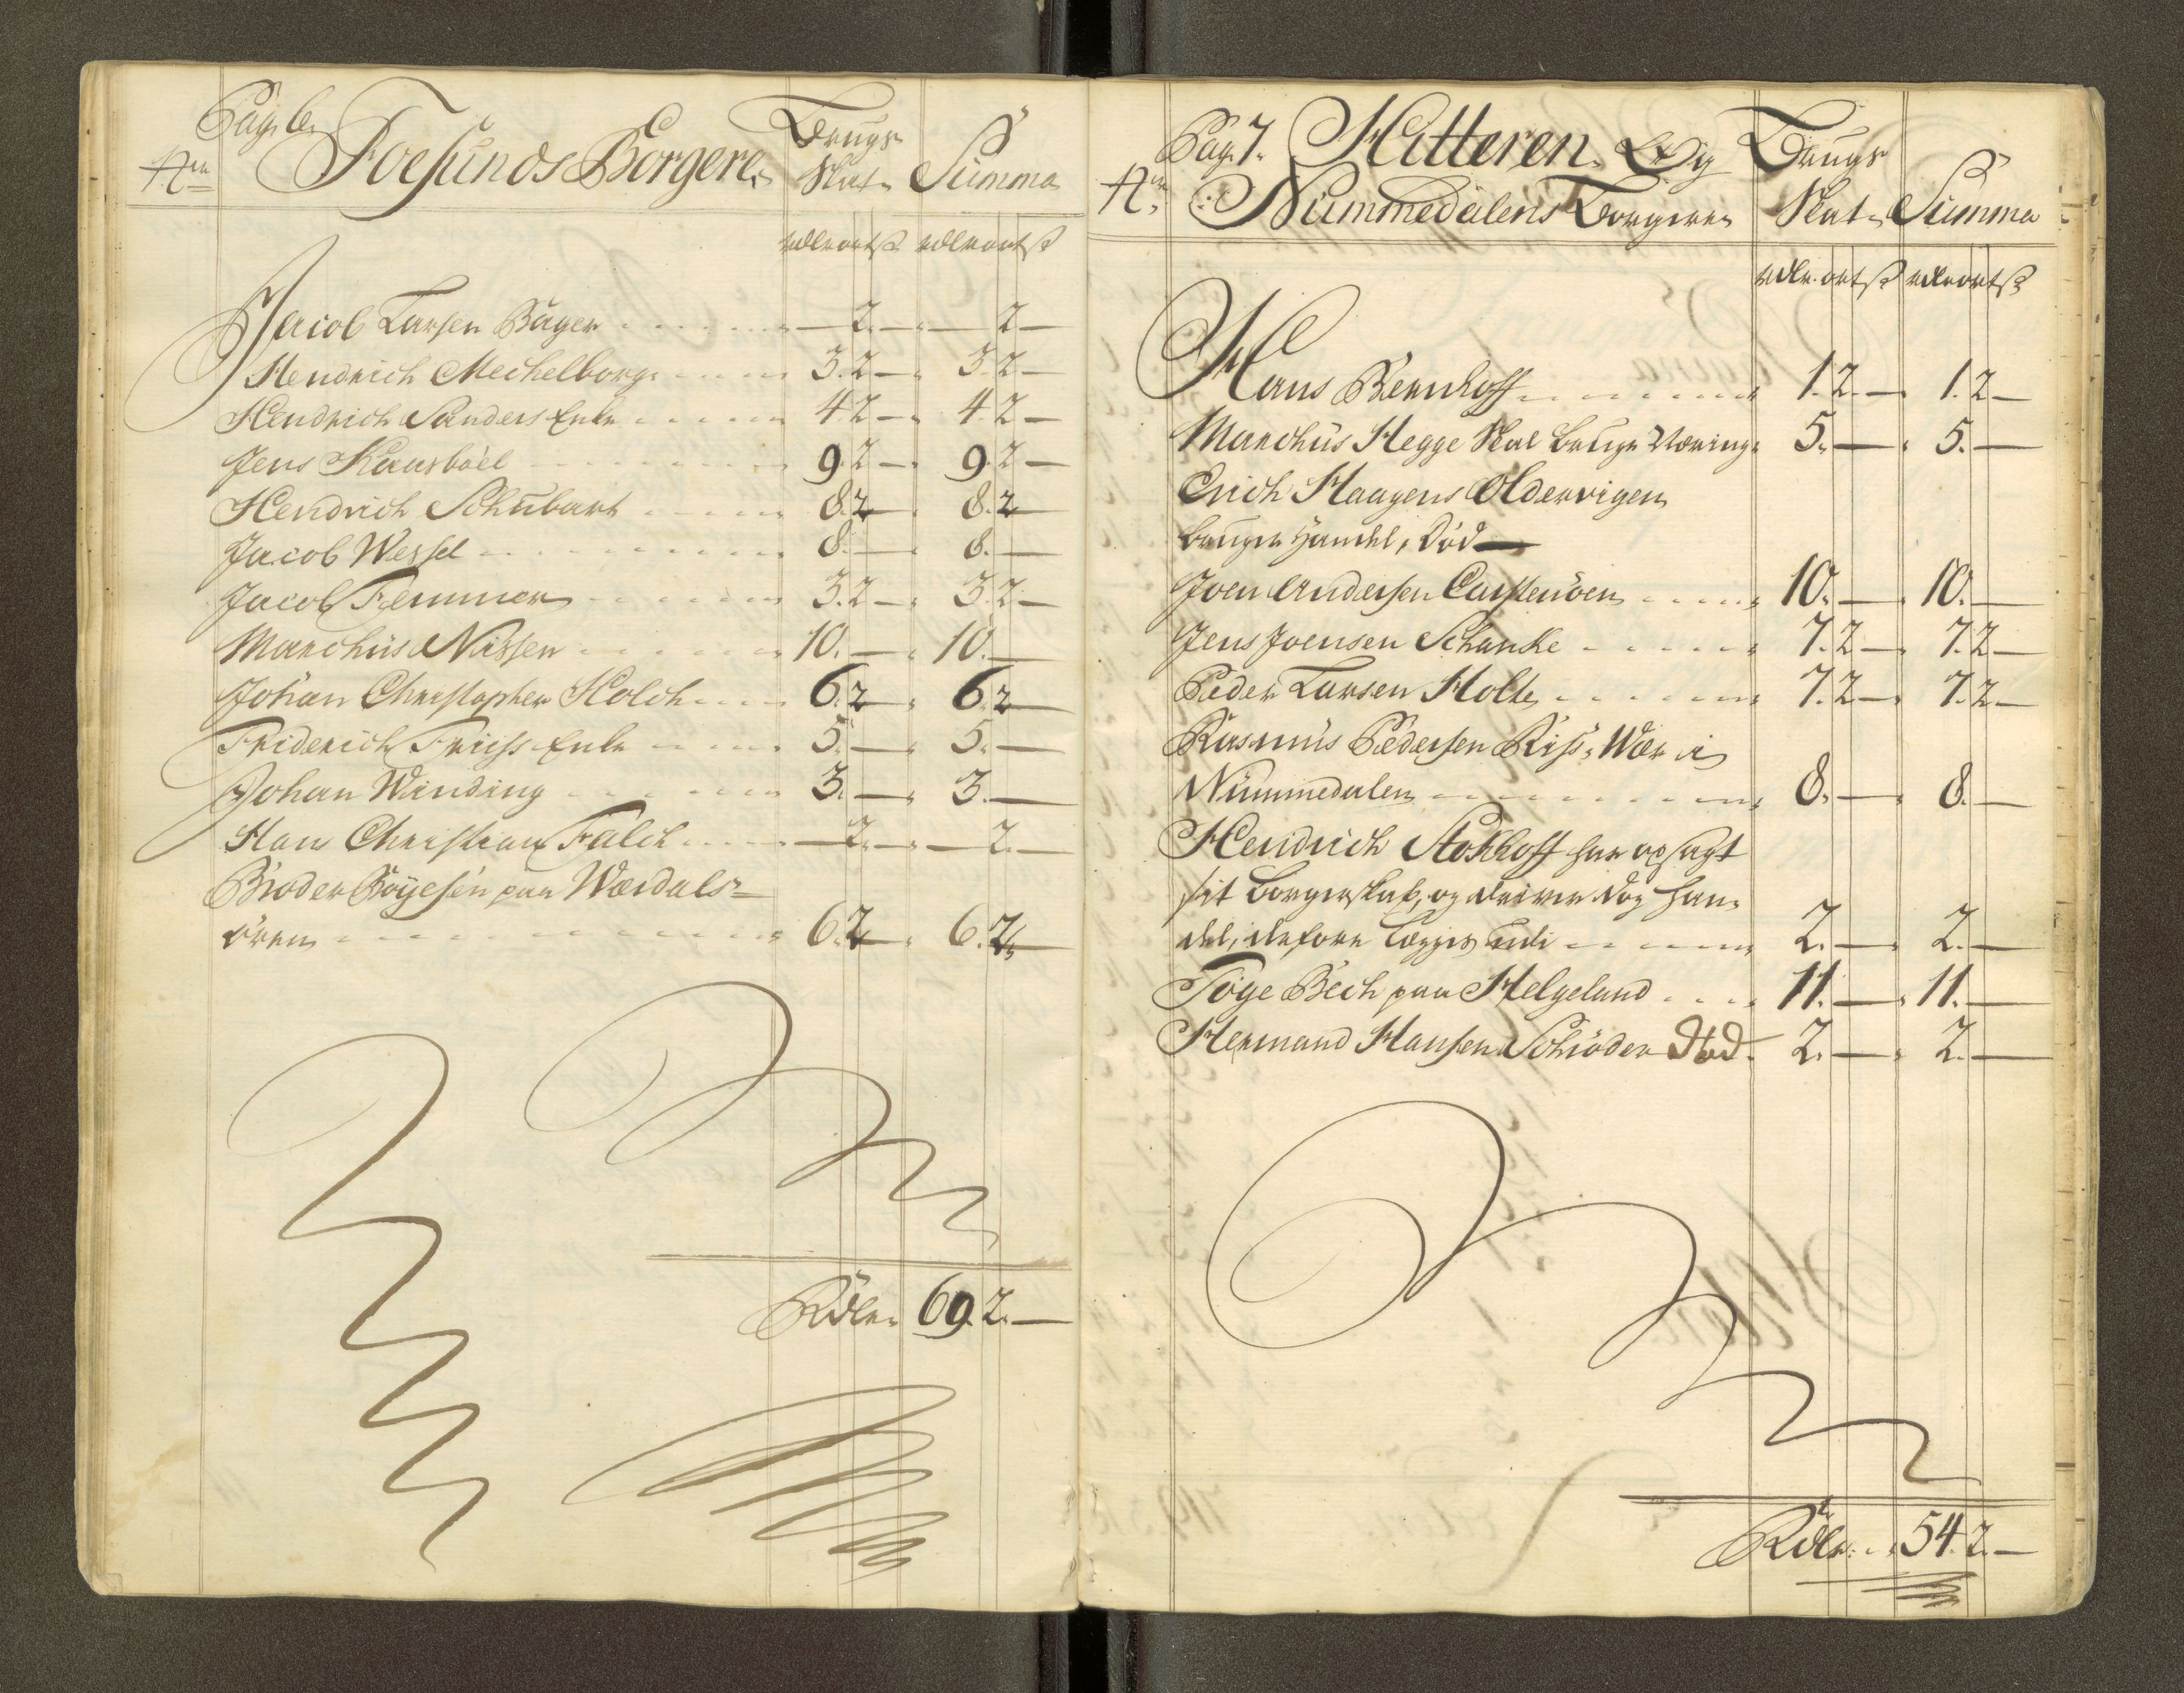 Pag. 6.
No
Foesunds Borgere
Brugs
Skat
Summa
rdlr ort ß rdlr ort ß
Jacob Larsen Bager — 2 — — 2 —
Hendrich Mechelborg 3. 2 — 3. 2 —
Hendrich Sanders Enke 4. 2 — 4. 2 —
Jens Kaasböel 9. 2 — 9. 2 —
Hendrich Schubart 8. 2 — 8. 2 —
Jacob Wessel 8. — 8. —
Jacob Femmer 3. 2 — 3. 2 —
Marchus Nissen 10. — 10. —
Johan Christopher Holch 6. 2 — 6. 2 —
Friderich Friess Enke 5. — 5. —
Johan Winding 3. — 3. —
Hans Christian Falch — 2. — — 2. —
Broder Böyesen paa Wærdals-
ören 6. 2 — 6. 2 —
Rdlr 69. 2. —
Pag. 7. Hitteren Og Brugs
No Nummedalens Borgere Skat Summa
rdlr. ort ß rdlr ort ß
Hans Bernhoff 1. 2. — 1. 2 —
Marchus Hegge Skal bruge Næring 5. — 5. —
Erich Haagens Oldervigen
bruger Handel, Död —
Joen Andersen Carstenöen 10. — 10. —
Jens Joensen Schanke 7. 2 — 7. 2 —
Peder Larsen Holte 7. 2 — 7. 2 —
Rasmus Pedersen Riss, Wær i
Nummedalen 8. — 8. —
Hendrich Stokhoff har opsagt
sit Borgerskab, og driver dog han-
del, derfore legges ham 2. — 2. —
Töge Bech paa Helgeland 11. — 11. —
Hermand Hansen Schröder 2. — 2. —
Rdlr. 54. 2. —